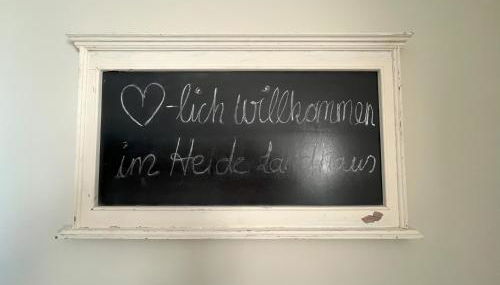 ♡-lich willkommen
im Heide Landhaus